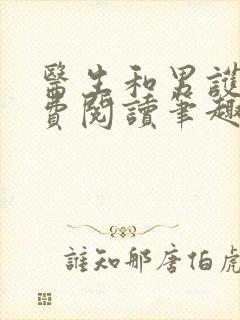 醫生和男護
費閱讀筆趣
誰知那唐伯虎